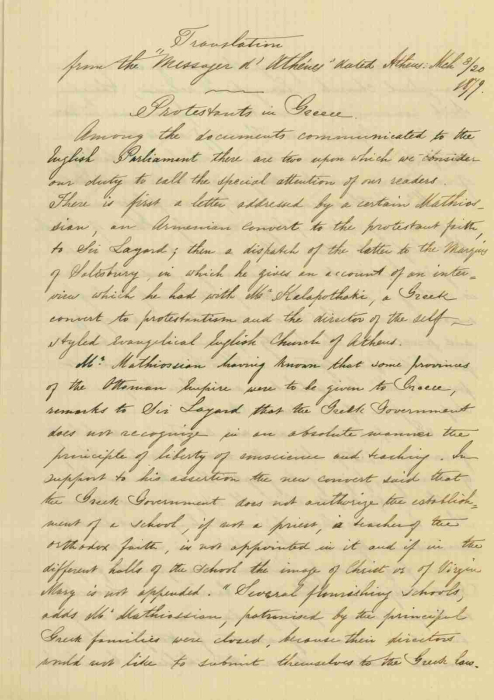 Translation
from the "Messager d'Athènes" dated Athens Mch 8/20
1879.
Protestants in Greece.
Among the documents communicated to the
English Parliament there are two upon which we consider
our duty to call the special attention of our readers.
There is first a letter addressed by a certain Mathios-
sian, an Armenian convert to the protestant faith,
to Sir Layard; then a dispatch of the latter to the Marquis
of Salesbury, in which he gives an account of an inter-
view which he had with Mr Kalapothaki, a Greek
convert to protestantism and the director of the self-
styled Evangelical English Church of Athens.
Mr Mathiossian having known that some provinces
of the Ottoman Empire were to be given to Greece,
remarks to Sir Layard that the Greek Government
does not recognize in an absolute manner the
principle of liberty of conscience and teaching. In
support to his assertion the new convert said that
the Greek Government does not authorize the establish-
ment of a school, if not a priest, a teacher of the
orthodox faith, is not appointed in it and if in the
different halls of the school the image of Christ or of Virgin
Mary is not appended. "Several flourishing schools,
adds Mr Mathiossian, patronised by the principal
Greek families were closed, because their directors
would not like to submit themselves to the Greek law.